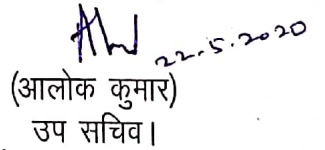 22.5.2020
(आलोक कुमार)
उप सचिव।